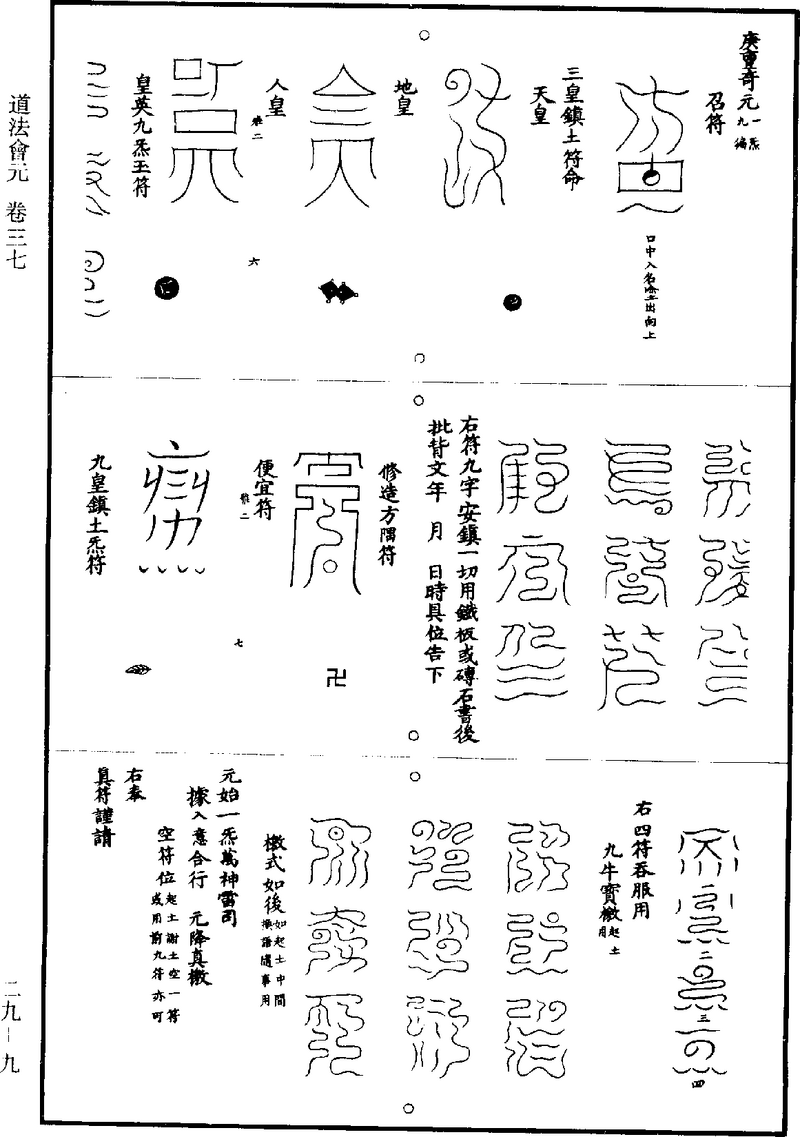 道法會元　卷三七
庚重奇元一炁九徧
召符
口中入名塗出向上
三皇鎮土符命
天皇
地皇
人皇
六
皇英九炁玉符
右符九字安鎮一切用鐵板或磚石書後
批背文年　月　日時具位告下
修造方隅符
便宜符
卍
七
九皇鎮土炁符
二
三
四
右四符吞服用
九牛寶檄起土用
檄式如後如起土中間換語隨事用
元始一炁萬神雷司
據入意合行　元降真檄
空符位起土謝土空一符或用前九符亦可
右奉
真符謹請
二九－九